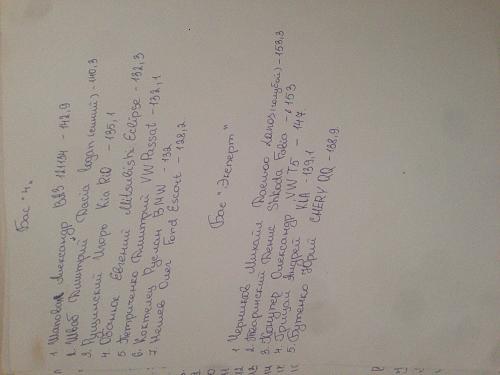 Бас "4"
1 Шаповал Александр ВАЗ 21134 - 142,9
2. Швас Дмитрий Dacia Logan (синий) - 140,3
3. Рущинский Игорь Kia Rio - 135,1
4. Евгений Mitsubishi Eclipse - 132,3
5 Петриченко Дмитрий VW Passat - 132,1
6. Коктелец Руслан BMW - 132
7 Нешев Олег Ford Escort - 128,2
Бас "Эксперт"
1 Черников Михайл Daewoo Lanos (голубой) - 158,3
2. Тваринский Денис Shkoda Fabia - 153
3. Александр VW T5 - 147
4. Грицай Андрей KIA - 139,1
5. Бутенко Юрий CHERY QQ - 138,9